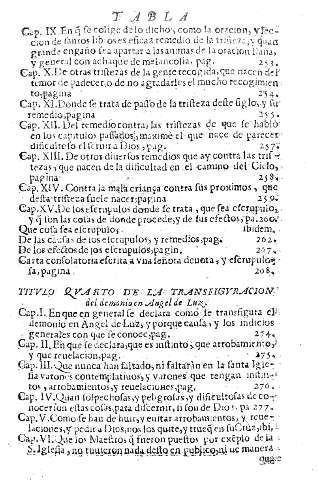 TABLA
Cap. IX. En q̃ se colige de lo dicho, como la oracion, y lec-
cion de santos libros es eficaz remedio de la tristeza, y quan
grande engaño sea apartar a las animas de la oracion santa,
y general con achaque de melancolia. pag. 253.
Cap. X. De otras tristezas de la gente recogida, que nacen del
temor de parecer, o de no agradarles el mucho recogimien-
to, pagina 254.
Cap. XI. Donde se trata de passo de la tristeza deste siglo, y su
remedio, pagina 255.
Cap. XII. Del remedio contra las tristezas de que se hablò
en los capitulos passados, maxime el que nace de parecer
dificultoso el seruir a Dios, pag. 257.
Cap. XIII. De otros diuersos remedios que ay contra las tris-
tezas, que nacen de la dificultad en el camino del Cielo,
pagina 258.
Cap. XIV. Contra la mala criança contra sus proximos, que
desta tristeza suele nacer, pagina 259.
Cap. XV. De los escrupulos donde se trata, que sea escrupulo,
y q̃ son las cosas de donde procede, y de sus efectos, pa. 260.
Que cosa sea escrupulo, ibidem.
De las causas de los escrupulos, y remedios, pag. 262.
De los efectos de los escrupulos, pagin. 267.
Carta consolatoria escrita a vna señora deuota, y escrupulo-
sa, pagina 208.
TITVLO QVARTO DE LA TRANSFIGVRACION
del demonio en Angel de Luz.
Cap. I. En que en general se declara como se transfigura el
demonio en Angel de Luz, y porque causa, y los indicios
generales con que se conoce, pag. 274.
Cap. II. En que se declara, que es instinto, que arrobamiento,
y que reuelacion, pag. 275.
Cap. III. Que nunca han faltado, ni faltaràn en la santa Igle-
sia varones contemplatiuos, y varones que tengan instin-
tos, arrobamientos, y reuelaciones, pag. 276.
Cap. IV. Quan sospechosas, y peligrosas, y dificultosas de co-
nocer son estas cosas, para discernir, si son de Dios. pa 277.
Cap. V. Como se han de huir, y euitar arrobamientos, y reue-
laciones, y pedir a Dios, nos los quite, y trueq̃ en su Cruz, ibi.
Cap. VI. Que los Maestros q̃ fueron puestos por exẽplo de la
S. Iglesia, no tuuieron nada desto en publico, ni de manera
que